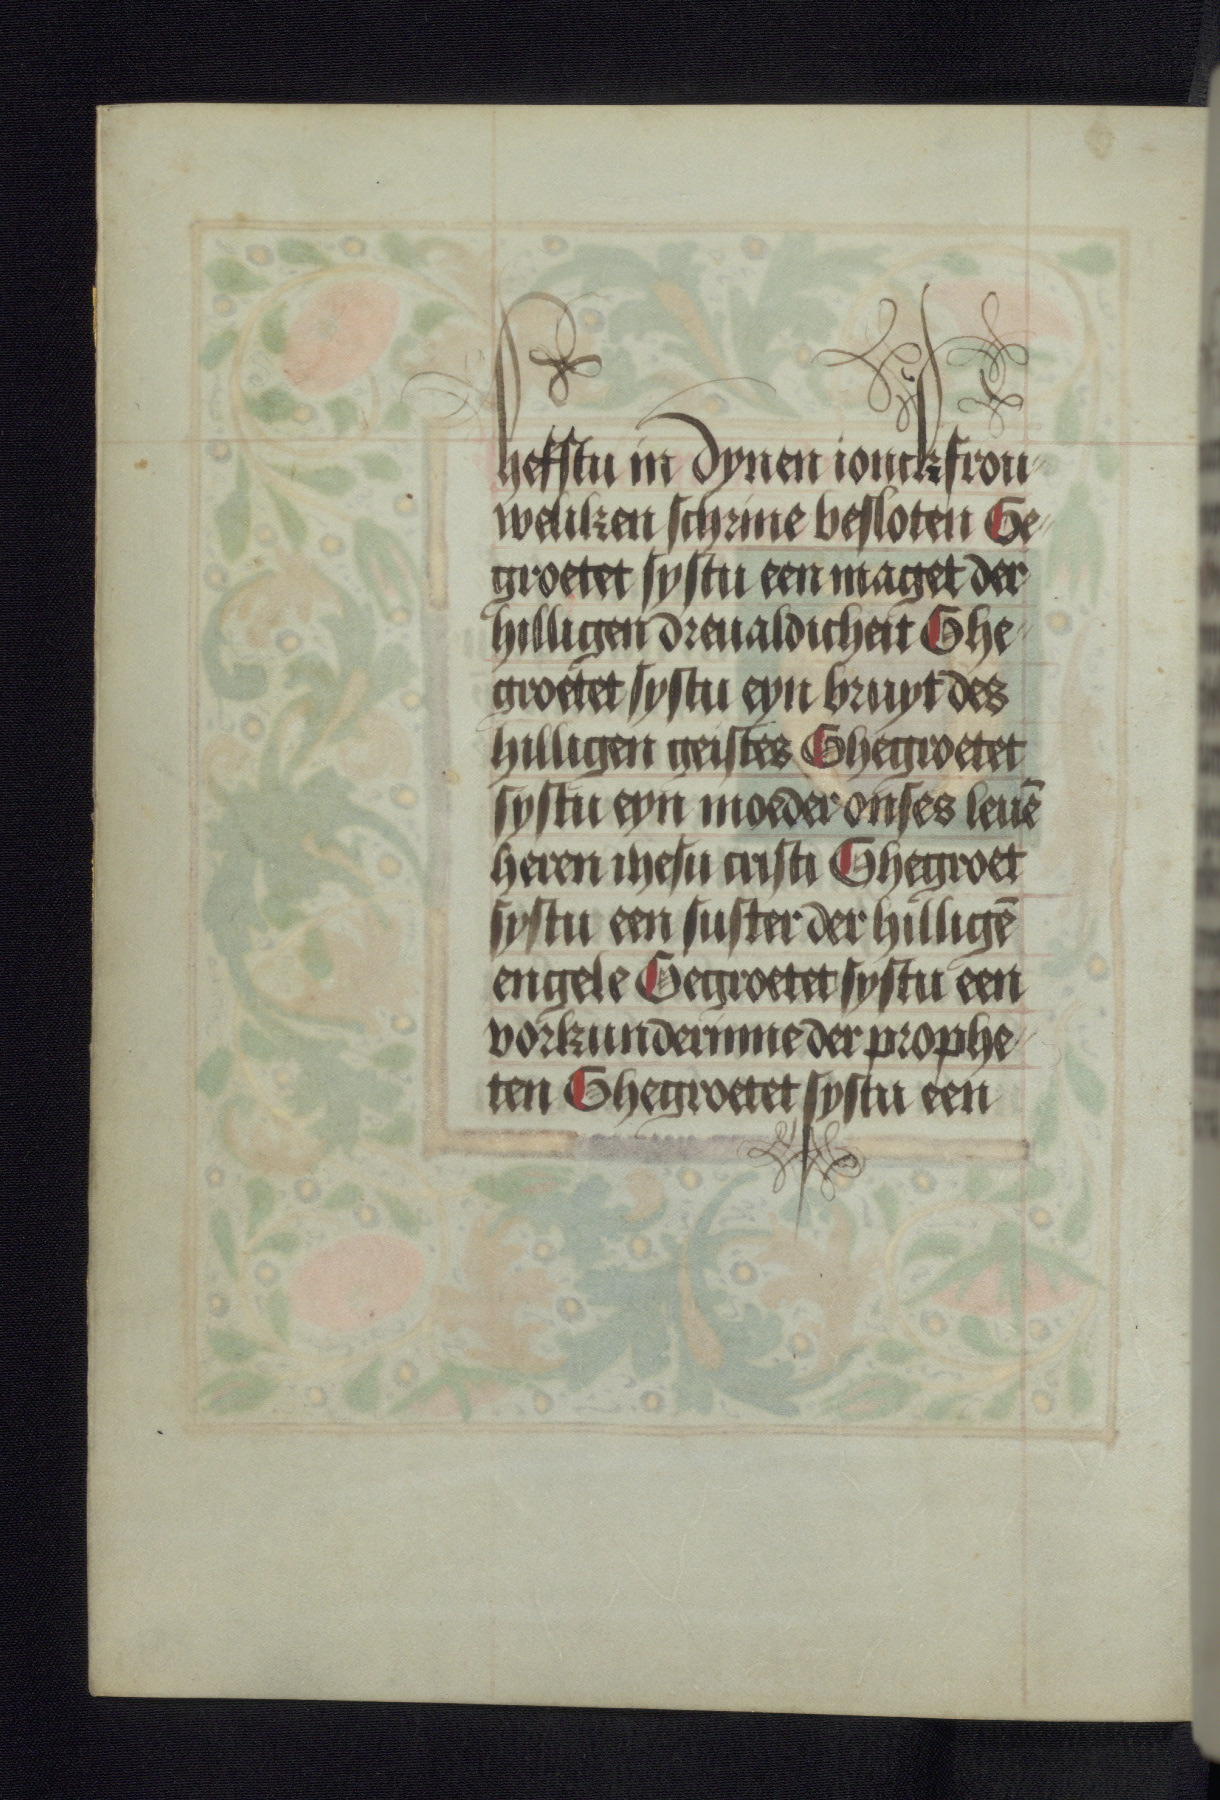 hefstu in dynen ionckfrou-
weliken schrine besloten Ge-
groetet systu een maget der
hilligen dreualdicheit Ghe-
groetet systu eyn bruyt des
hilligen geistes Ghegroetet
systu eyn moeder onses leuē
heren ihesu cristi Ghegroet
systu een suster der hilligē
engele Gegroetet systu een
vorkunderinne der prophe-
ten Ghegroetet systu een